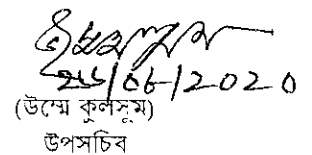 ২৬/০৮/2020
(উম্মে কুলসুম)
উপসচিব